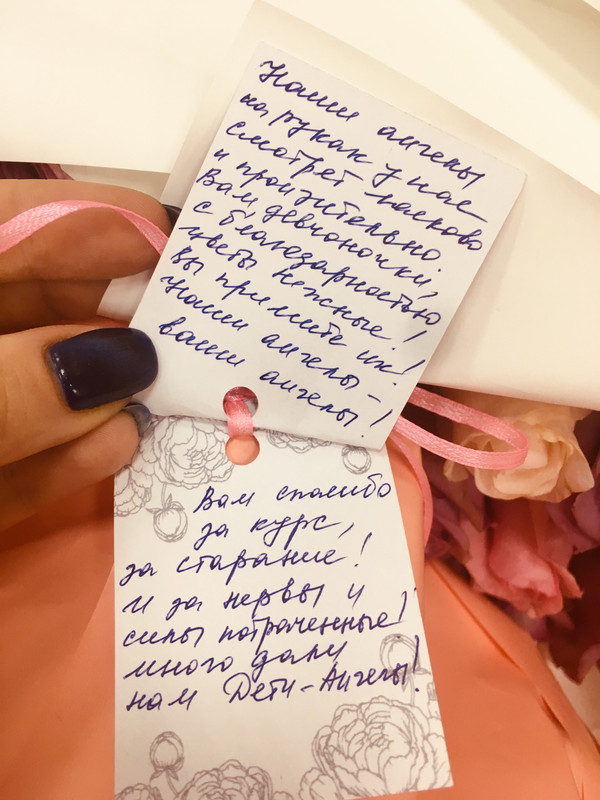 Наши ангелы
на руках у нас
смотрят ласково
и пронзительно.
Вам девчоночки,
с благодарностью
цветы нежные!
Вы примите их!
Наши ангелы –
ваши ангелы!
Вам спасибо
за курс,
за старание!
И за нервы и
силы потраченные!
Много дали
нам Дети-Ангелы!